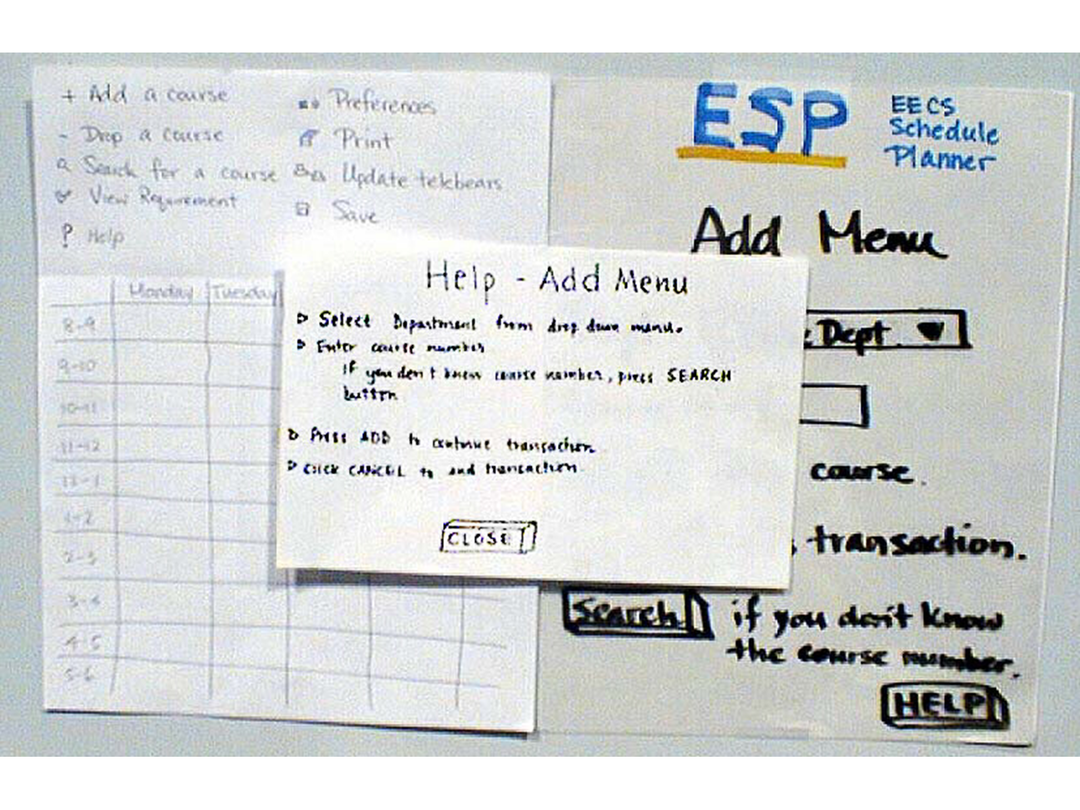 + Add a course
- Drop a course
Search for a course
View Requirement
? Help
Preferences
Print
Update telebears
Save
Monday Tuesday
8-9
9-10
10-11
11-12
12-1
1-2
2-3
3-4
4-5
5-6
Help - Add Menu
▷ Select Department from drop down menu.
▷ Enter course number
If you don't know course number, press SEARCH
button
▷ Press ADD to continue transaction
▷ Click CANCEL to end transaction
CLOSE
ESP
EECS
Schedule
Planner
Add Menu
Dept.
course.
transaction.
Search if you don't know
the course number.
HELP